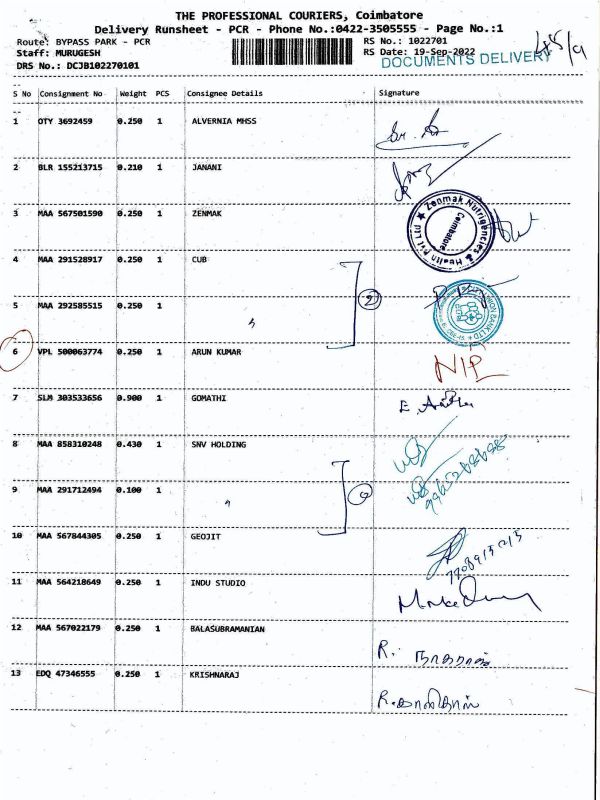 THE PROFESSIONAL COURIERS, Coimbatore
Delivery Runsheet - PCR - Phone No.:0422-3505555 - Page No.:1
Route: BYPASS PARK - PCR RS No.: 1022701
Staff: MURUGESH RS Date: 19-Sep-2022
DOCUMENTS DELIVERY
DRS No.: DCJB102270101
S No Consignment No Weight PCS Consignee Details Signature
1 OTY 3692459 0.250 1 ALVERNIA MHSS
2 BLR 155213715 0.210 1 JANANI
3 MAA 567501590 0.250 1 ZENMAK
Zenmak Nutrigencies & Health Pvt Ltd ★ Coimbatore
4 MAA 291528917 0.250 1 CUB
2
5 MAA 292585515 0.250 1 〃
6 VPL 500063774 0.250 1 ARUN KUMAR
7 SLM 303533656 0.900 1 GOMATHI
8 MAA 858310248 0.430 1 SNV HOLDING
9 MAA 291712494 0.100 1 〃
10 MAA 567844305 0.250 1 GEOJIT
11 MAA 564218649 0.250 1 INDU STUDIO
12 MAA 567022179 0.250 1 BALASUBRAMANIAN
13 EDQ 47346555 0.250 1 KRISHNARAJ